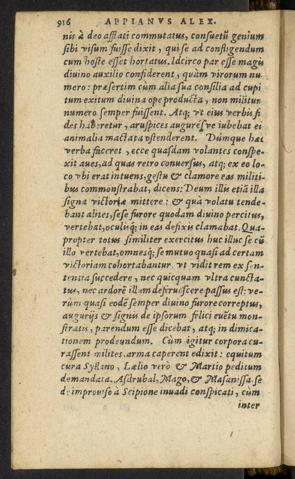 916 APPIANVS ALEX.
nis à deo afflati commutatus, consueti genium
sibi visum fuisse dixit, qui se ad confligendum
cum hoste esset hortatus. Idcirco par esse magis
diuino auxilio confiderent, quàm virorum nu-
mero: præsertim cum alia sua consilia ad cupi
tum exitum diuina ope producta, non militum
numero semper fuissent. Atq; vt eius verbis fi
des haberetur, aruspices auguresve iubebat ei
animalia mactata ostenderent. Dúmque hæc
verba faceret, ecce quasdam volantes conspe-
xit aues, ad quas retro conuersus, atq; ex eo lo-
co vbi erat intuens, gestu & clamore eas militi-
bus commonstrabat, dicens: Deum illis etiā illa
signa victoriæ mittere: & quà volatu tende-
bant alites, sese furore quodam diuino percitus,
vertebat, oculisq; in eas defixis clamabat. Qua-
propter totus similiter exercitus huc illuc se cū
illo vertebat, omnesq; se mutuo quasi ad certam
victoriam cohortabantur. vt vidit rem ex sen-
tentia succedere, nec quicquam vltrà cuncta-
tus, nec ardorē illum deferuescere passus est: ve-
rùm quasi eodē semper diuino furore correptus,
augurijs & signis de ipsorum felici euētu mon-
stratis, parendum esse dicebat, atq; in dimica-
tionem prodeundum. Cùm igitur corpora cu-
rassent milites, arma caperent edixit: equitum
cura Syllano, Lælio verò & Martio peditum
demandata. Asdrubal, Mago, & Masanissa se
de improuiso à Scipione inuadi conspicati, cùm
inter